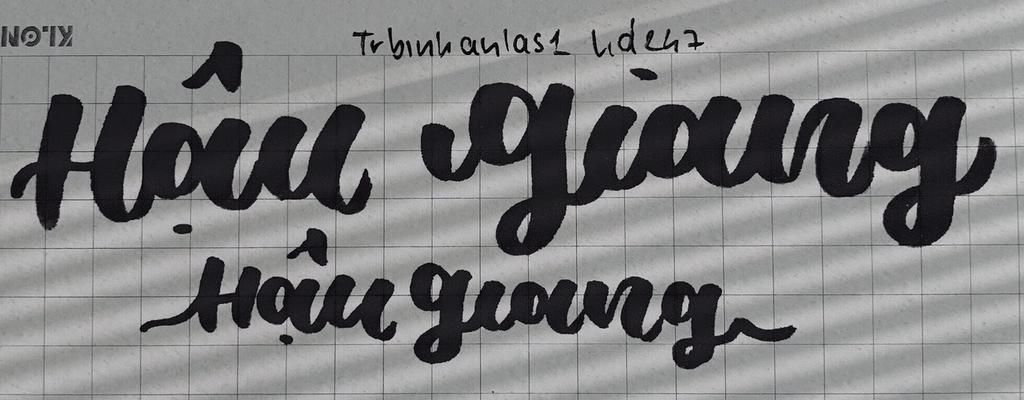 KLON
Trbinhanlas1
Hậu Giang
Hậu Giang